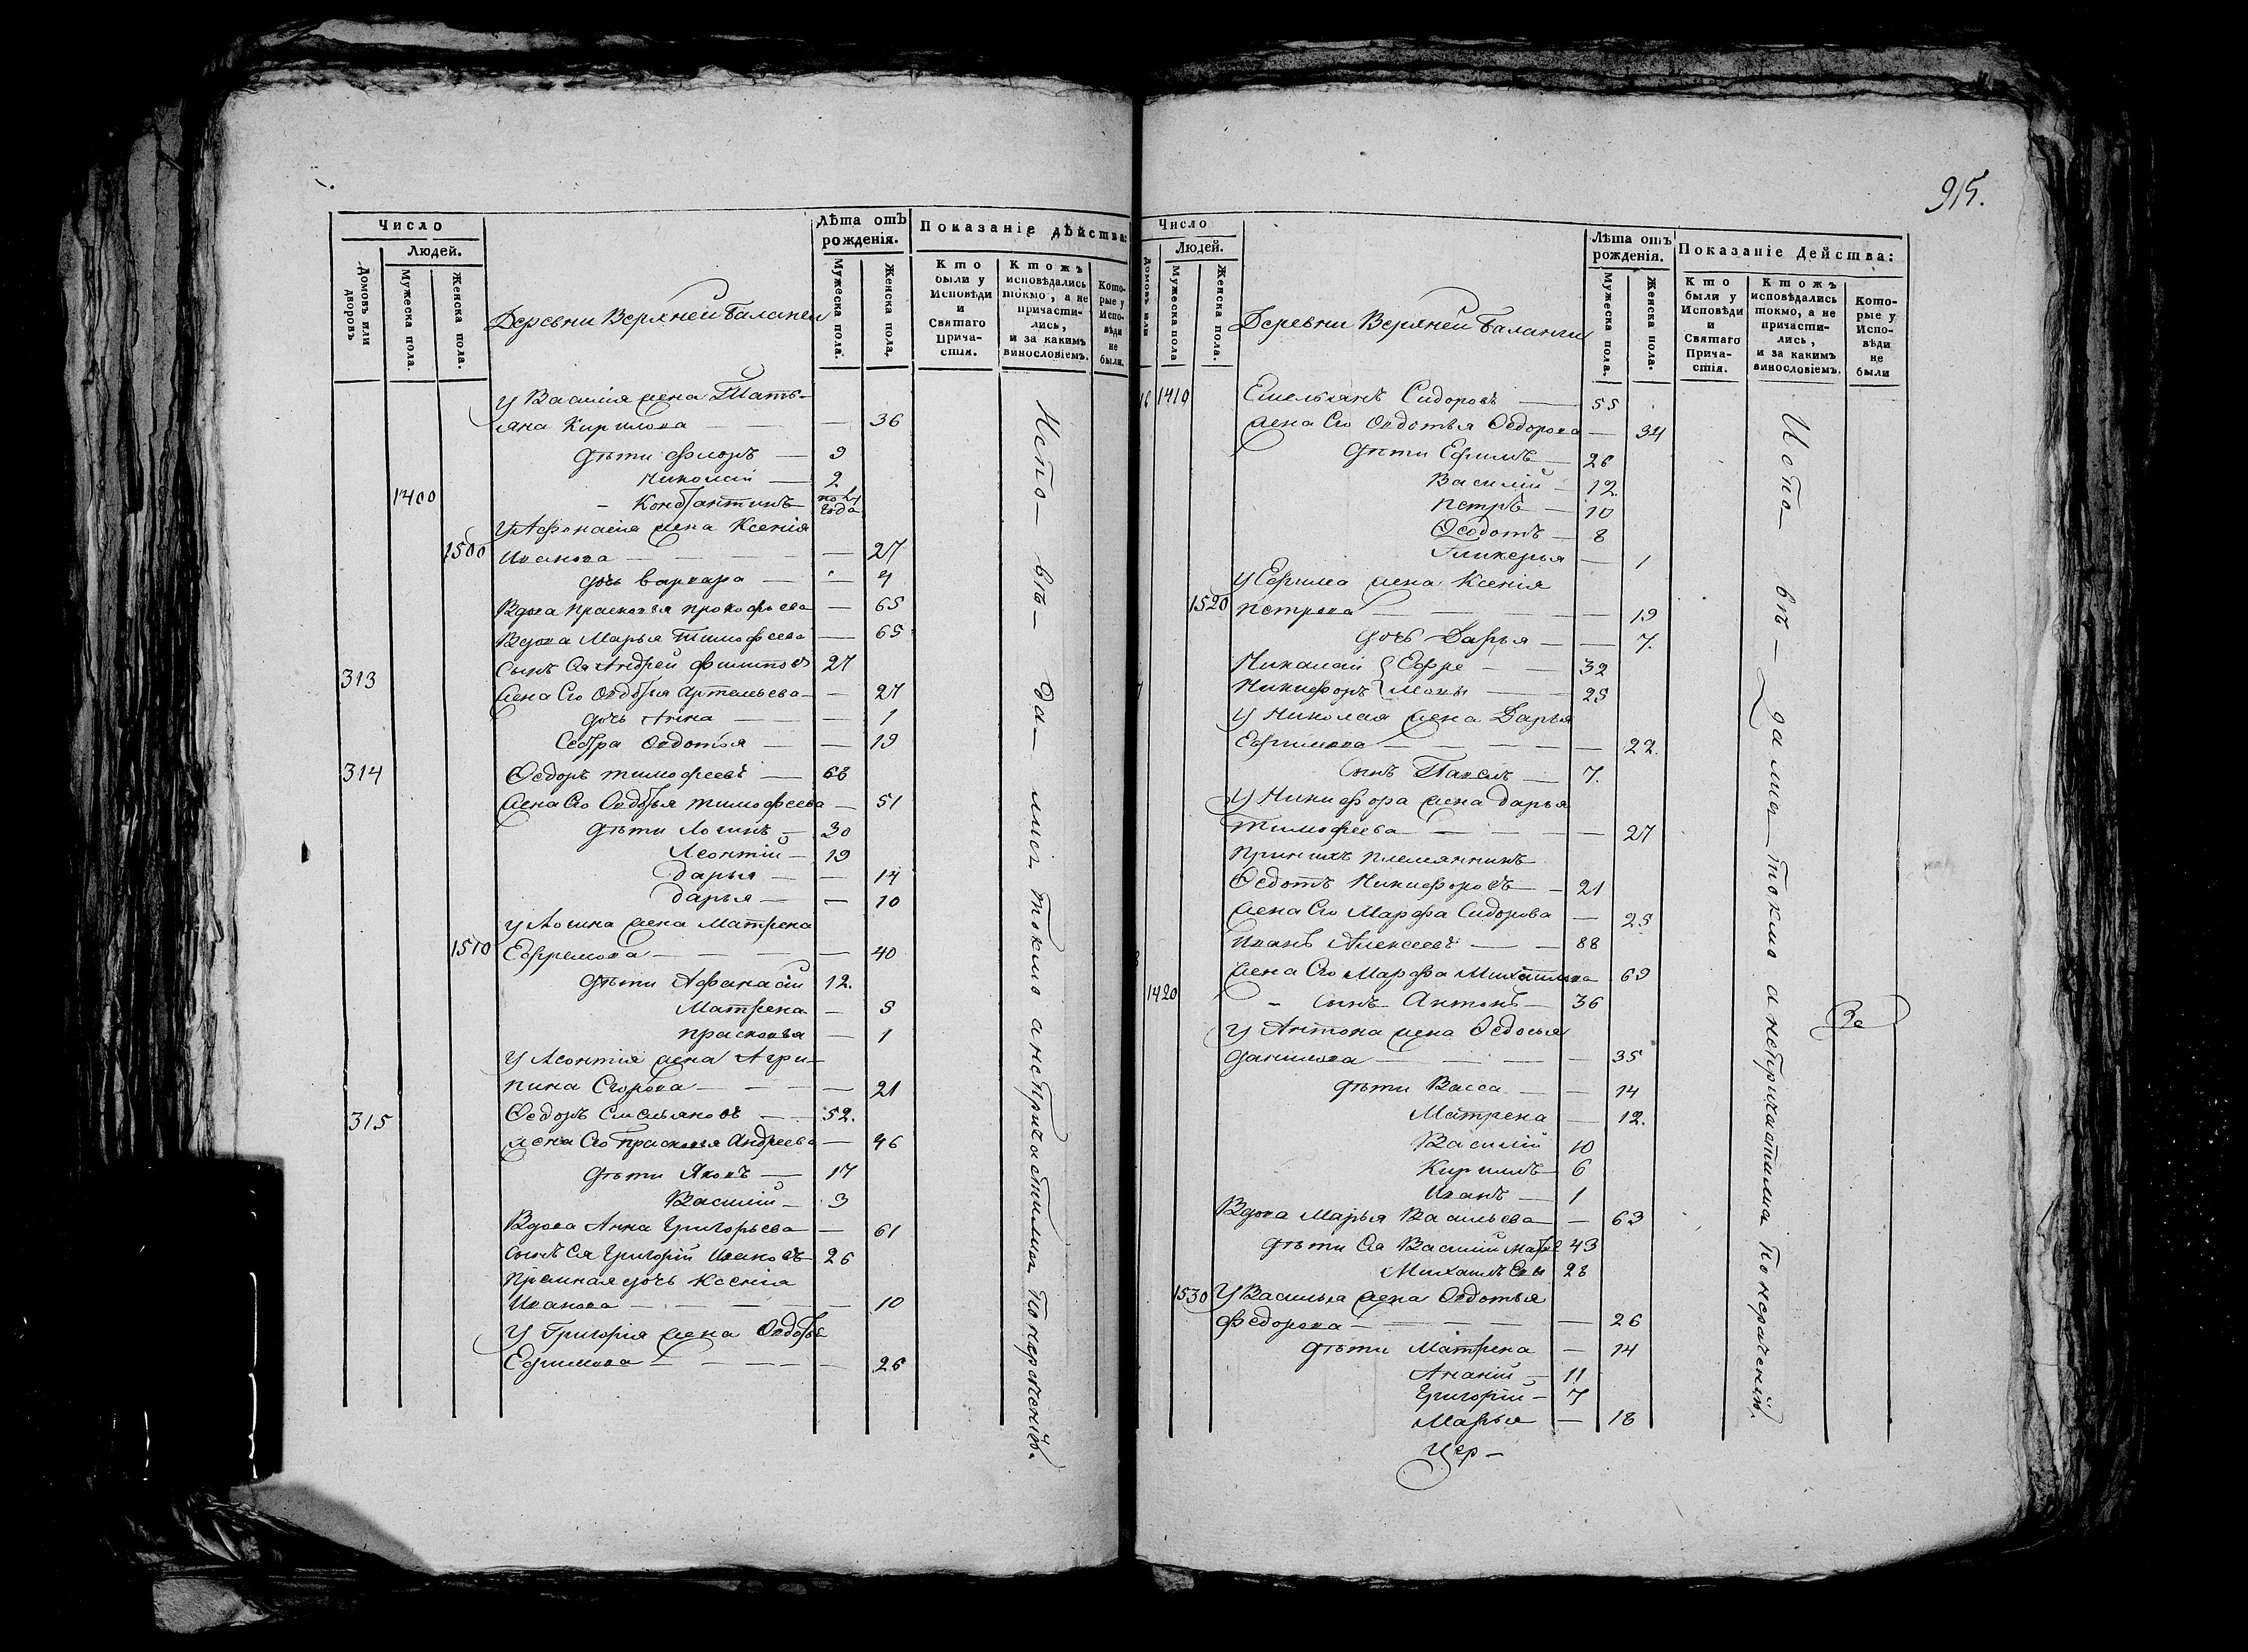 915.
Число
Людей.
Домовъ или дворовъ
Мужеска пола.
Женска пола.
Деревни Верхней Баланеи
Лѣта отъ рожденія.
Мужеска пола.
Женска пола.
Показаніе дѣйства:
Кто были у Исповѣди и Святаго Прича-стія.
Ктожъ исповѣдались токмо, а не причасти-лись, и за какимъ винословіемъ.
Кото-рые у Испо-вѣди не были.
У Василія жена Тать-
яна Кирилова — 36
дѣти Флоръ — 9
Николай — 2
1400 Констан­тинъ пол года
У Афонасія жена Ксенія
1500 Иванова — 27
дочь Варвара — 4
Вдова Прасковья Прокофьева — 65
Вдова Марья Тимофеева — 65
313 Сынъ Ея Андрей Филиповъ 27
Жена Его Овдотья Артемьева — 27
дочь Анна — 1
Сестра Овдотья — 19
314 Ѳедоръ Тимофеевъ — 68
Жена Его Овдотья Тимофеева — 51
дѣти Логинъ — 30
Леонтій — 19
Дарья — 14
Дарья — 10
У Логина жена Матрена
1510 Ефремова — 40
дѣти Афанасій 12.
Матрена — 5
Прасковья — 1
У Леонтія жена Агри-
пина Егорова — 21
315 Ѳедоръ Емельяновъ — 52.
Жена Его Прасковья Андреева — 46
дѣти Яковъ — 17
Василій — 3
Вдова Анна Григорьева — 61
Сынъ Ея Григорій Ивановъ 26
Приемная дочь Ксенія
Иванова — 10
У Григорія жена Овдотья
Ефимова — 26
Испо- вѣ- да- лись токмо а непричастились по нерачению.
Число
Людей.
Домовъ или
Мужеска пола
Женска пола.
Деревни Верхней Баланеи
Лѣта отъ рожденія.
Мужеска пола.
Женска пола.
Показаніе Действа:
Кто были у Исповѣди и Святаго Прича-стія.
Ктожъ исповѣдались токмо, а не причасти-лись, и за какимъ винословіемъ.
Кото-рые у Испо-вѣди не были
16 1410 Емельянъ Сидоровъ — 55
Жена Его Овдотья Ѳедорова — 34
дѣти Ефимъ — 26
Василій — 12.
Петръ — 10
Ѳедотъ — 8
Гликерья — 1
У Ефима жена Ксенія
1520 Петрова — 19
дочь Дарья — 7.
Николай } Ефре — 32
Никифоръ } мовы — 25
У Николая жена Дарья
Ефимова — 22.
Сынъ Павелъ — 7.
У Никифора жена Дарья
Тимофеева — 27
Племянникъ
Ѳедотъ Никифоровъ — 21
Жена Его Марфа Сидорова — 25
Иванъ Алексеевъ — 88
Жена Его Марфа Михайлова 69
1420 Сынъ Антонъ — 36
У Антона жена Ѳедосья
Данилова — 35
дѣти Васса — 14
Матрена — 12.
Василій 10
Кирилъ — 6
Иванъ — 1
Вдова Марья Васильева — 63
дѣти Ея Василій 43
Михаилъ 28
1530 У Василья жена Овдотья
Федорова — 26
дѣти Матрена — 14
Ананій — 11
Григорій — 7
Марья — 18
Испо- вѣ- дались токмо а непричастились по нерачению.
Цер-